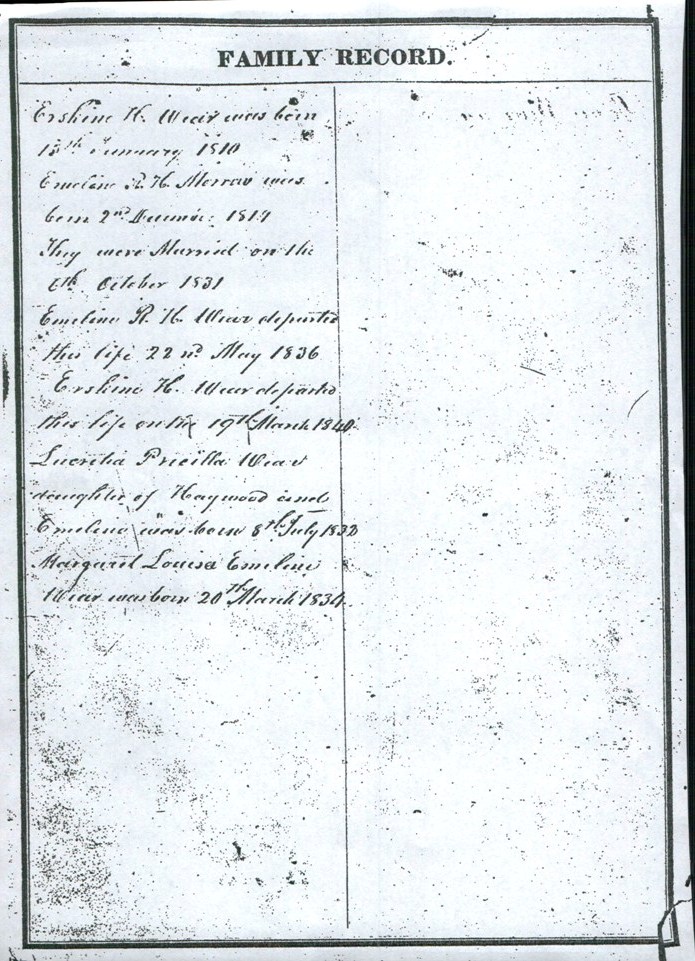 FAMILY RECORD.
Erskine H. Wear was born
January 1810
Emeline R. H. Morrow was
born 2nd 1817
They were Married on the
6th October 1831
Emeline R. H. Wear departed
this life 22nd May 1836
Erskine H. Wear departed
this life on the 19th March 1840.
Lucretia Pricilla Wear
daughter of Haywood and
Emeline was born 8th July 1832
Margaret Louisa Emeline
Wear was born 20th March 1834